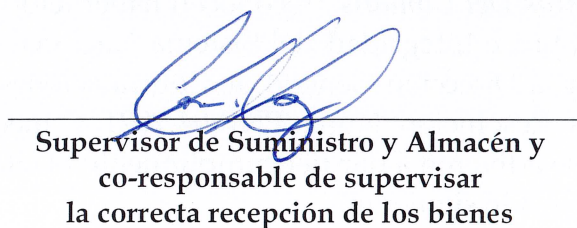 Supervisor de Suministro y Almacén y
co-responsable de supervisar
la correcta recepción de los bienes